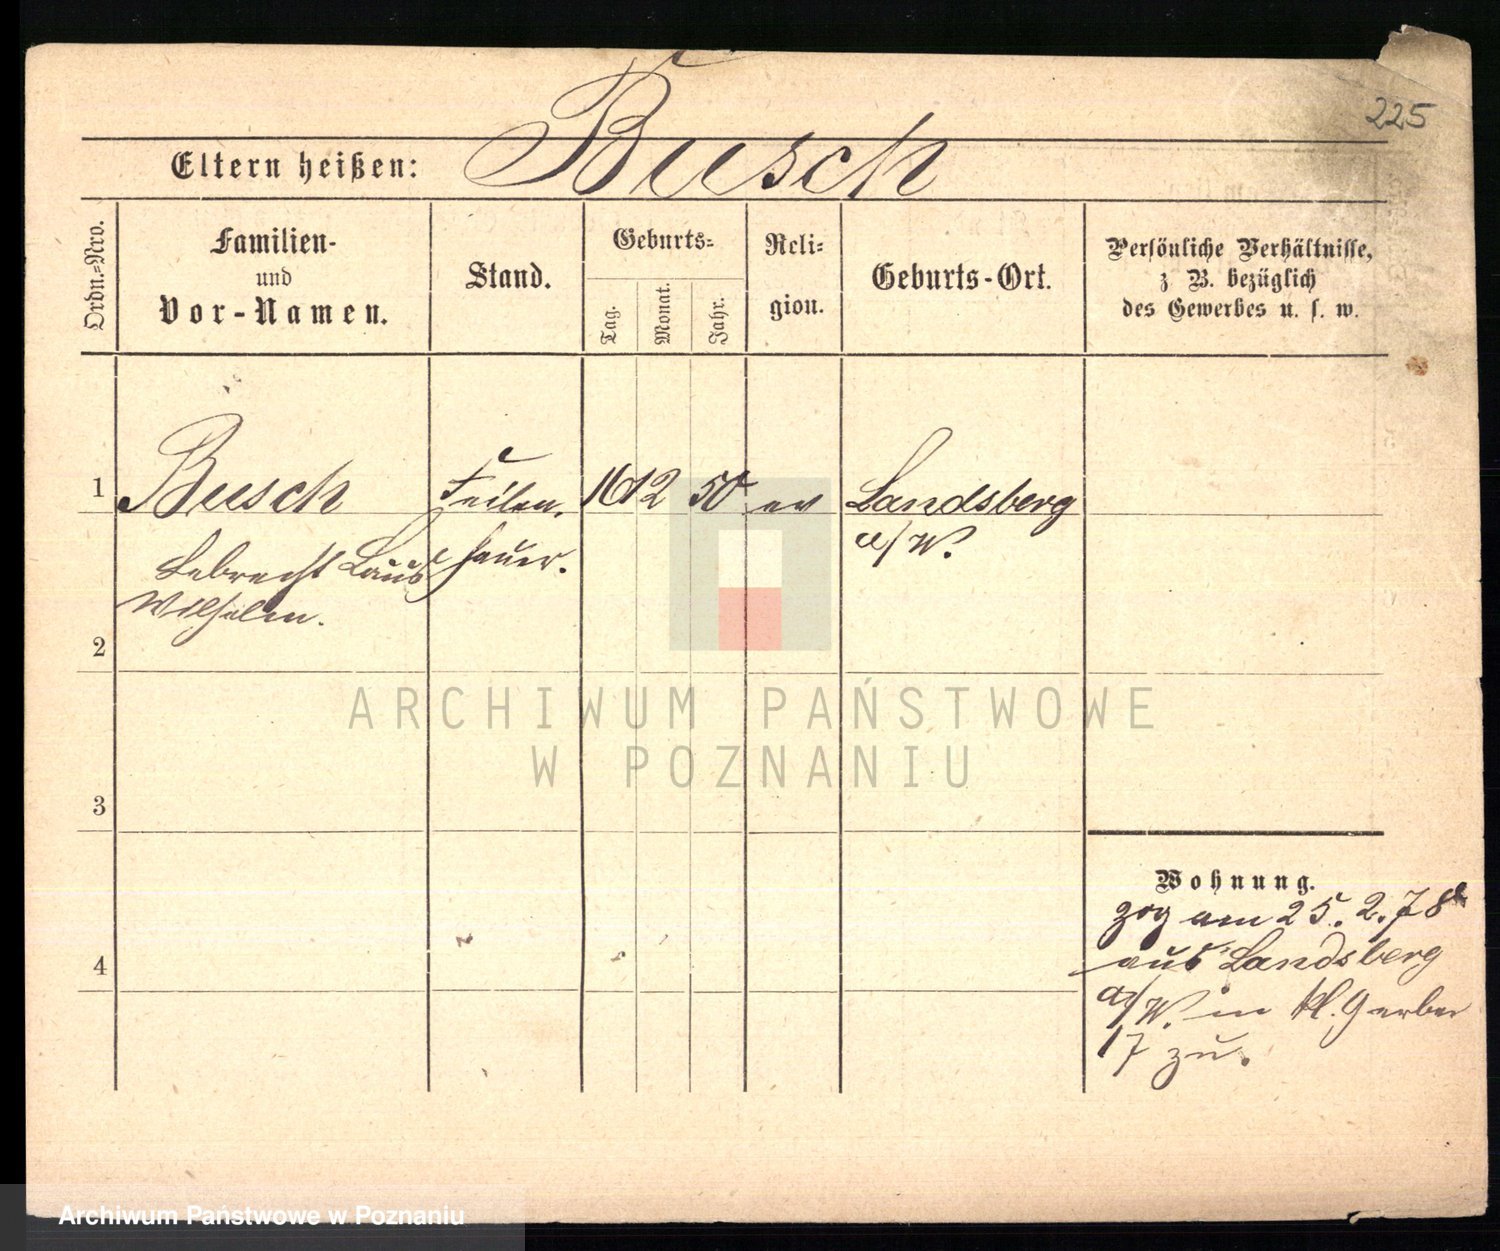 225
Eltern heißen: Busch
Ordn.=Nro.
Familien-
und
Vor-Namen.
Stand.
Geburts=
Tag.
Monat.
Jahr.
Reli=
gion.
Geburts-Ort.
Persönliche Verhältnisse,
z. B. bezüglich
des Gewerbes u. s. w.
1 Busch Feilen. 12 50 ev Landsberg
Lebrecht hauer. a/W.
Wilhelm.
2
3
4
Wohnung.
zog am 25. 2. 78
aus Landsberg
a/W. in kl. Gerber
17 zu.
ARCHIWUM PAŃSTWOWE
W POZNANIU
Archiwum Państwowe w Poznaniu